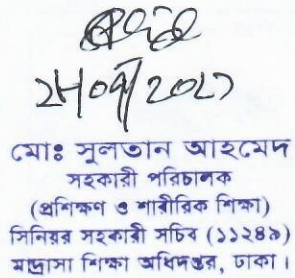 মোঃ সুলতান আহমেদ
সহকারী পরিচালক
(প্রশিক্ষণ ও শারীরিক শিক্ষা)
সিনিয়র সহকারী সচিব (১১২৪৯)
মাদ্রাসা শিক্ষা অধিদপ্তর, ঢাকা।